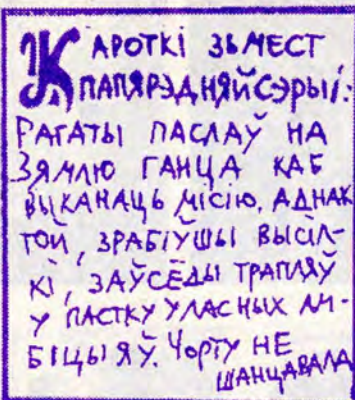 КАРОТКІ ЗЬМЕСТ
ПАПЯРЭДНЯЙ СЭРЫІ:
РАГАТЫ ПАСЛАЎ НА
ЗЯМЛЮ ГАНЦА КАБ
ВЫКАНАЦЬ МІСІЮ, АДНАК
ТОЙ, ЗРАБІЎШЫ ВЫСІЛ-
КІ, ЗАЎСЁДЫ ТРАПЛЯЎ
У ПАСТКУ УЛАСНЫХ АМ-
БІЦЫЯЎ. ЧОРТУ НЕ
ШАНЦАВАЛА